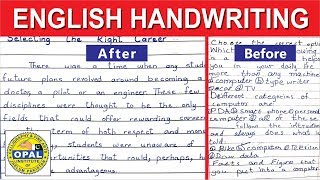 ENGLISH HANDWRITING
Selecting The Right Career
After
Before
There was a time when any stud
future plans revolved around becoming a
doctor, a pilot or an engineer. These few
disciplines were thought to be the only
fields that could offer rewarding career
term of both respect and mone
students were unaware of
opportunities that could, perhaps, h
advantageous.
OPAL
INSTITUTE
Choose the correct opti
Which
in your daily
more than any machine
computer type writer
Radar TV
Different categories of
computer are:
PDA smart phone personal
computer all of these
follow the instruction
and always does what is
told.
Bike computer Engine
Raw data
Facts and Figures that
you put into a computer